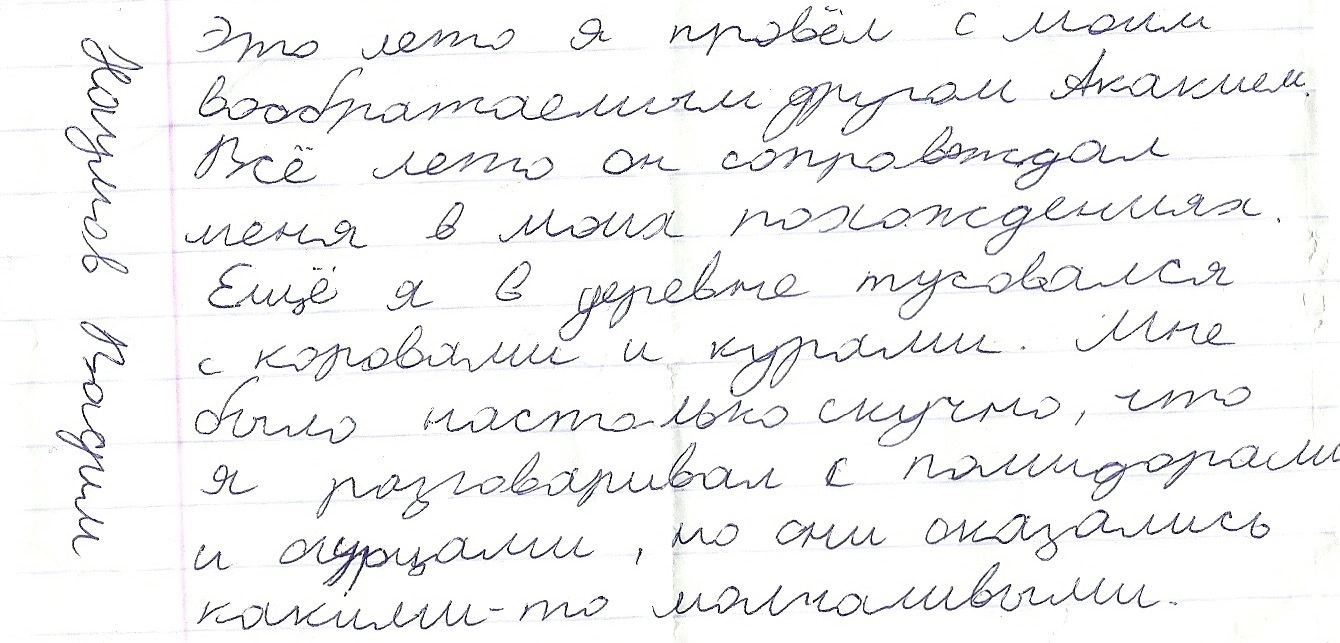 Это лето я провёл с моим
воображаемым другом Акакием.
Всё лето он сопровождал
меня в моих похождениях.
Ещё я в деревне тусовался
с коровами и курами. Мне
было настолько скучно, что
я разговаривал с помидорами
и огурцами, но они оказались
какими-то молчаливыми.
Вадим